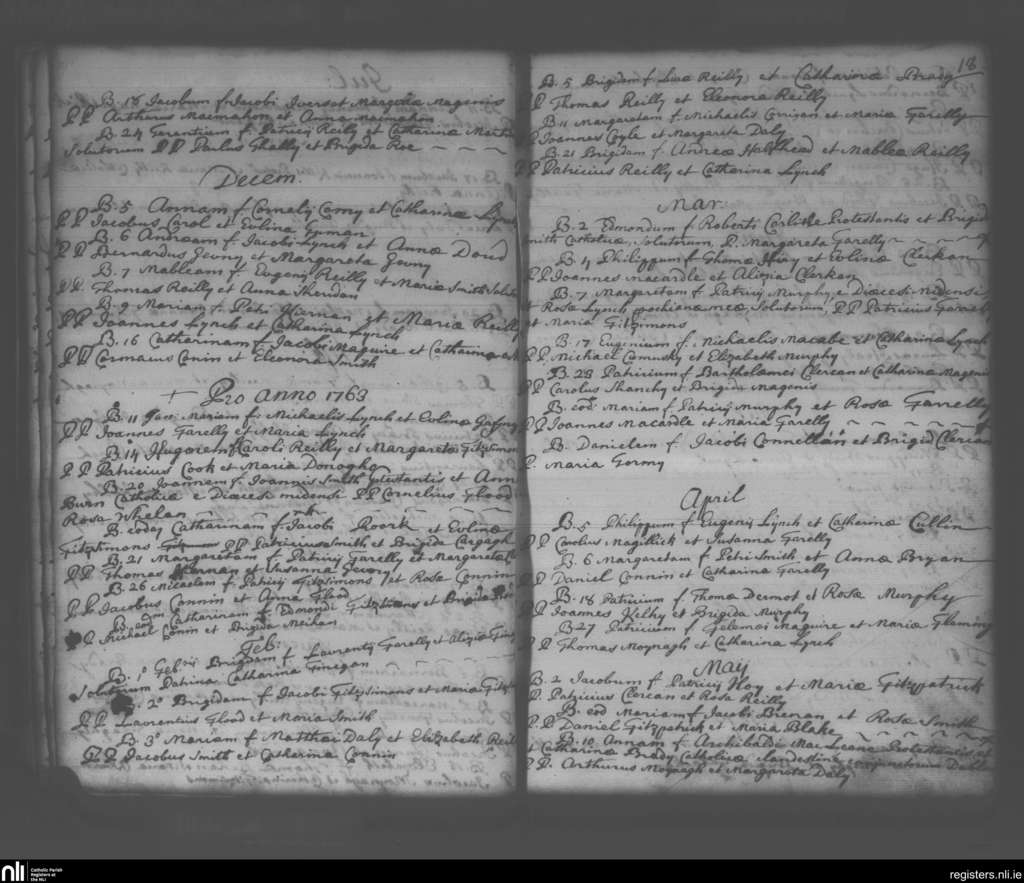 B. 16 Jacobum f. Jacobi Ivers et Margeria Magenis
PP Arthurus Macmahon et Anna Macmahon
B. 24 Terentium f. Patricij Reily et Catharinæ
Solutorum PP Paulus Ghally et Brigida Roe
Decem.
B. 5 Annam f. Cornelij Comy et Catharinæ Lynch
PP Jacobus Carol et Evlina
B. 6 Andream f. Jacobi Lynch et Annæ Doud
PP Bernardus Jevny et Margareta Jevny
B. 7 Mableam f. Eugenij Reilly et Mariæ Smith
PP. Thomas Reilly et Anna Sheridan
B. 9 Mariam f. Petri Kiernan et Mariæ Reilly
PP Joannes Lynch et Catharina Lynch
B. 16 Catharinam f. Jacobi Maguire et Catharinæ
PP Cormacus Conin et Eleonora Smith
Pro Anno 1763
B. 11 Jan: Mariam f. Michaelis Lynch et Evlinæ Gafney
PP Joannes Garelly et Maria Lynch
B. 14 Hugonem f. Caroli Reilly et Margaretæ Fitzsimons
PP Patricius Cook et Maria Donogho
B. 20 Joannem f. Joannis Smith Protestantis et Ann
Burn Catholicæ e Diæcesi midensi PP Cornelius Flood
Rosa Whelan
B. eodem Catharinam f. Jacobi Roork et Evlinæ
Fitzsimons PP Patricius Smith et Brigida Cargagh
B. 21 Margaretam f. Patricij Garelly et Margaretæ
PP Thomas Kiernan et Susanna Jevny
B. 26 Micaelem f. Patricij Fitzsimons et Rosæ Connin
P.P. Jacobus Connin et Anna Flood
B. eodm Catharinam f. Edmondi Fitzsimons et Brigidæ
P Michael Conin et Brigida Meihan
Feb:
B. 1o Febrij Brigidam f. Laurentij Garelly et Aliziæ
Solutorum Patrina Catharina Finegan
2o Brigidam f. Jacobi Fitzsimons et Mariæ
PP Laurentius Flood et Maria Smith
B. 3o Mariam f. Matthæi Daly et Elizabeth
PP Jacobus Smith et Catherina Connin
18
B. 5 Brigidam f. Lucæ Reilly et Catharinæ Brady
PP Thomas Reilly et Eleonora Reilly
B 11 Margaretam f. Michaelis Corrigan et Mariæ Garelly
P Joannes Coyle et Margareta Daly
B. 21 Brigidam f. Andreæ et Mableæ Reilly
PP Patricius Reilly et Catharina Lynch
Mar.
B. 2 Edmondum f. Roberti Carlisle Protestantis et Brigid
Smith Catholicæ, Solutorum, P. Margareta Garelly
B. 4 Philippum f. Thomæ et Evlinæ Clerkan
PP Joannes Macardle et Alizia Clerkan
B. 7 Margaretam f. Patricij Murphy e Diæcesi Midensi
et Rosæ Lynch parochianæ meæ, Solutorum, PP Patricius
et Maria Fitzsimons
B. 17 Eugenium f. Michaelis Macabe et Catharinæ Lynch
PP Michael Comusky et Elizabeth Murphy
B. 23 Patricium f. Bartholomei Clercan et Catharinæ Magenis
PP Carolus Shanchy et Brigida Magenis
B. eod: Mariam f. Patricij Murphy et Rosæ Garrelly
PP Joannes Macardle et Maria Garelly
B. Danielem f. Jacobi Connellan et Brigid Clercan
P. Maria Gormy
April
B. 5 Philippum f. Eugenij Lynch et Catherinæ Cullin
PP Carolus Magillick et Susanna Garelly
B. 6 Margaretam f. Petri Smith et Annæ Bryan
P Daniel Connin et Catharina Garelly
B. 18 Patricium f. Thomæ Dermot et Rosæ Murphy
PP Joannes Kelhy et Brigida Murphy
B 27 Patricium f. Felemei Maguire et Mariæ Flaming
PP Thomas Moynagh et Catharina Lynch
May
B. 2 Jacobum f. Patricij Hoy et Mariæ Fitzpatrick
P. Patricius Corcan et Rosa Reilly
B. eod Mariam f. Jacobi Brenan et Rosæ Smith
P.P Daniel Fitzpatrick et Maria Blake
B. 10 Annam f. Archibaldi MacLeane Protestantis et
Catharinæ Brady Catholicæ clandestinè conjunctorum
PP. Arthurus Moynagh et Margarota Daly
nli
Catholic Parish
Registers at
the NLI
registers.nli.ie